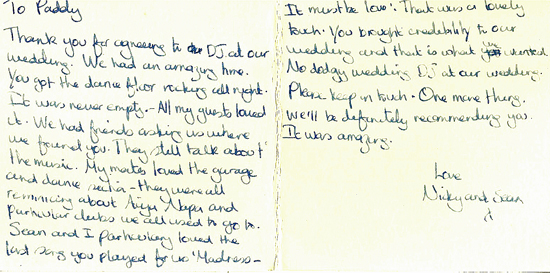 To Paddy
Thank you for agreeing to DJ at our
wedding. We had an amazing time.
You got the dance floor rocking all night.
It was never empty. - All my guests loved
it. We had friends asking us where
we found you. They still talk about
the music. My mates loved the garage
and dance section - they were all
reminicing about Aiya Napa and
particular clubs we all used to go to.
Sean and I particulary loved the
last song you played for us 'Madness -
It must be love'. That was a lovely
touch. You brought credability to our
wedding and that is what we wanted.
No dodgy wedding DJ at our wedding.
Please keep in touch. One more thing.
We'll be definately recommending you.
It was amazing.
Love
Nicky and Sean
x